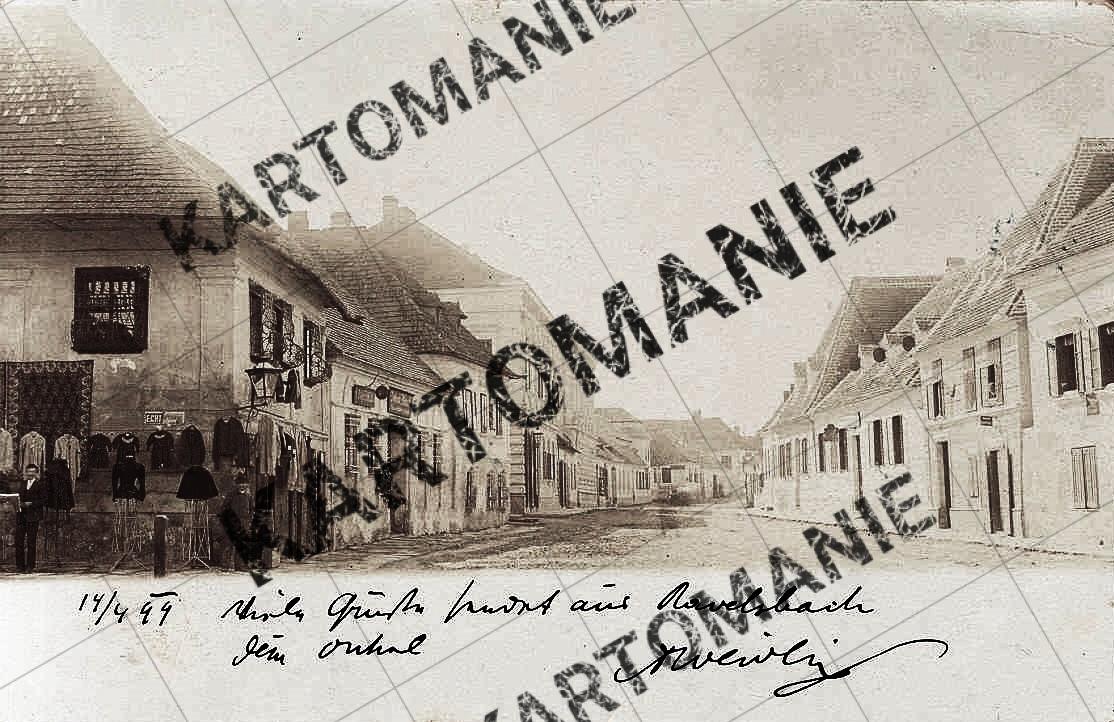 KARTOMANIE
KARTOMANIE
KARTOMANIE
KARTOMANIE
14/4 99 Viele Grüße sendet aus Ravelsbach
dem Onkel